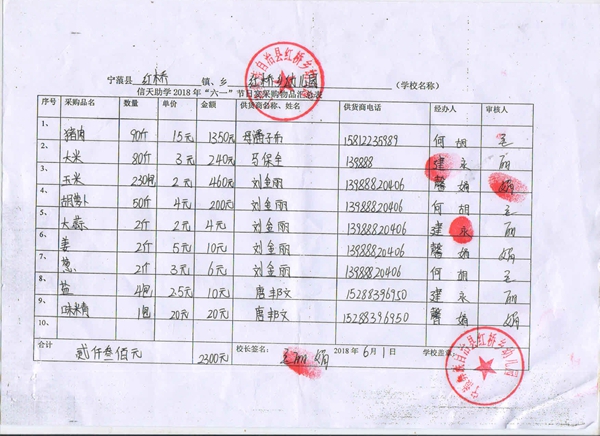 宁蒗县 红桥 镇、乡 红桥乡幼儿园 (学校名称)
信天助学2018年“六一”节日送采购物品汇总表
序号 采购品名 数量 单价 金额 供货商名称、姓名 供货商电话 经办人 审核人
1、 猪肉 90斤 15元 1350元 15812235989 何 胡
2、 大米 80斤 3元 240元 马保华 139888 建 永 丽
3、 玉米 230包 2元 460元 刘金丽 13988820406 馨 娟 娟
4、 胡萝卜 50斤 4元 200元 刘金丽 13988820406 何 胡
5、 大蒜 2斤 2元 4元 刘金丽 13988820406 建 永 丽
6、 姜 2斤 5元 10元 刘金丽 13988820406 馨 娟 娟
7、 葱 2斤 3元 6元 刘金丽 13988820406 何 胡
8、 盐 4包 2.5元 10元 唐邦文 15288396950 建 永 丽
9、 味精 1包 20元 20元 唐邦文 15288396950 馨 娟 娟
10、
合计 贰仟叁佰元 2300元 校长签名: 丽 娟 2018年6月1日 学校盖章:
宁蒗彝族自治县红桥乡幼儿园